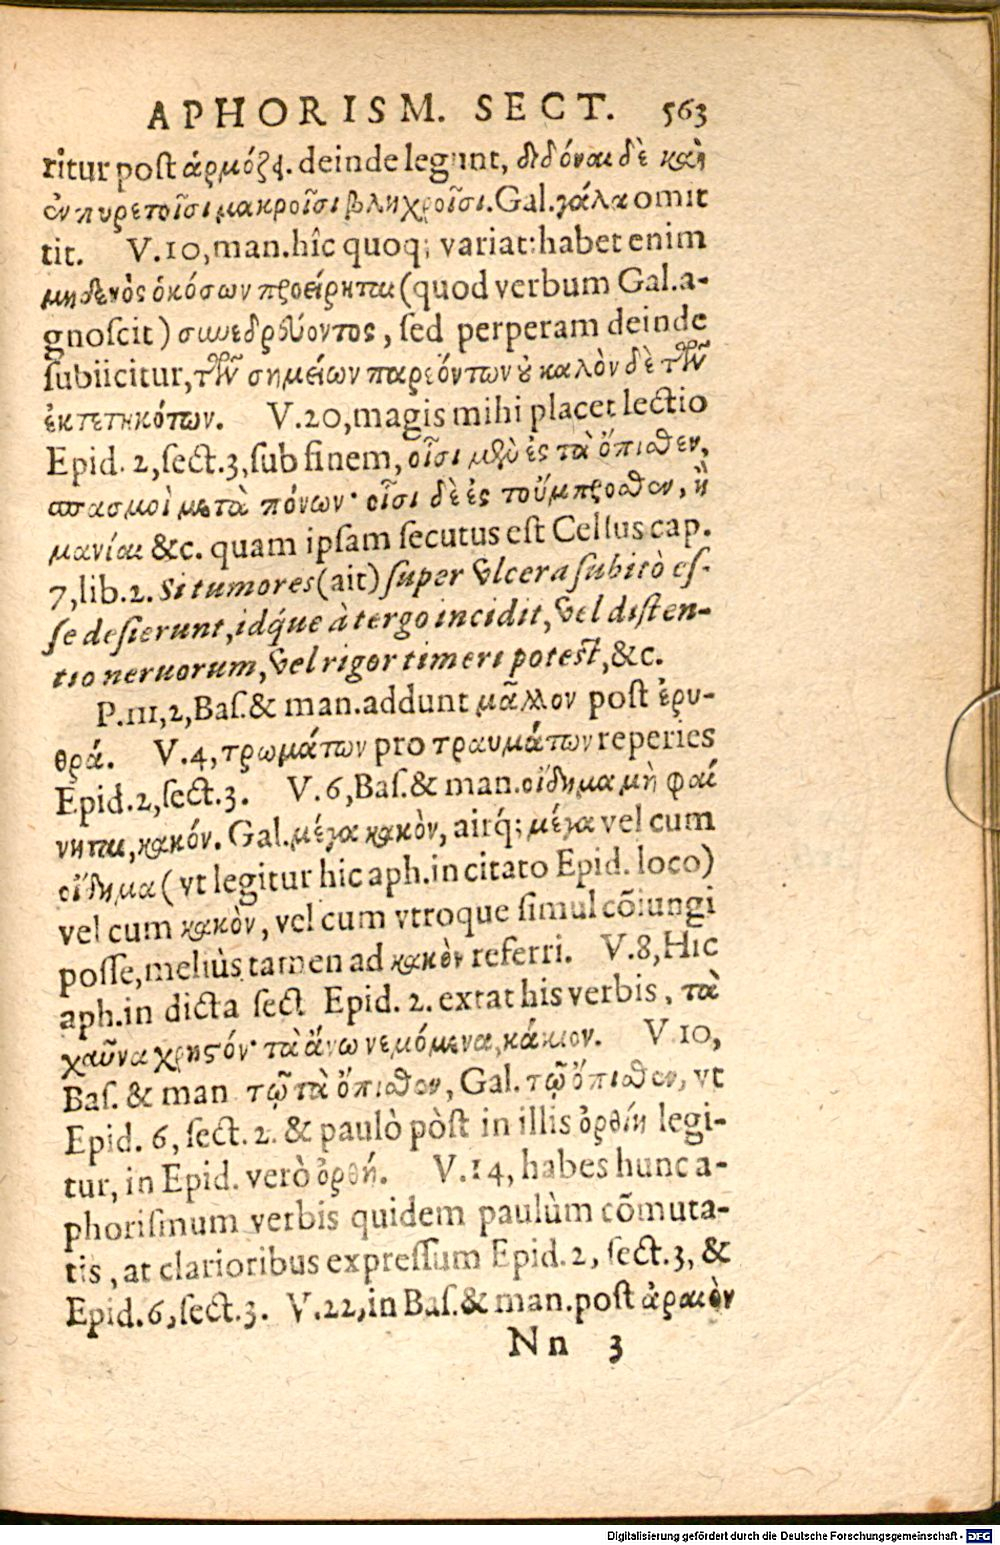 APHORISM. SECT. 563
ritur post ἁρμόζει. deinde legunt, διδόναι δὲ καὶ
ἐν πυρετοῖσι μακροῖσι βληχροῖσι. Gal. γάλα omit
tit. V. 10, man. hîc quoq; variat: habet enim
μηδενὸς ὁκόσων προείρηται (quod verbum Gal. a-
gnoscit) συνεδρεύοντος, sed perperam deinde
subiicitur, τῶν σημείων παρεόντων οὐ καλὸν δὲ τῶν
ἐκτετηκότων. V. 20, magis mihi placet lectio
Epid. 2, sect. 3, sub finem, οἷσι μὲν ἐς τὰ ὄπισθεν,
σπασμοὶ μετὰ πόνων· οἷσι δὲ ἐς τοὔμπροσθεν, ἢ
μανίαι &c. quam ipsam secutus est Celsus cap.
7, lib. 2. Si tumores (ait) super vlcera subitò es-
se desierunt, idq́ue à tergo incidit, vel disten-
tio neruorum, vel rigor timeri potest, &c.
P. III, 2, Bas. & man. addunt μᾶλλον post ἐρυ-
θρά. V. 4, τρωμάτων pro τραυμάτων reperies
Epid. 2, sect. 3. V. 6, Bas. & man. οἴδημα μὴ φαί
νηται, κακόν. Gal. μέγα κακὸν, aitq́; μέγα vel cum
οἴδημα (vt legitur hic aph. in citato Epid. loco)
vel cum κακὸν, vel cum vtroque simul cõiungi
posse, meliùs tamen ad κακὸν referri. V. 8, Hic
aph. in dicta sect Epid. 2. extat his verbis, τὰ
χαῦνα χρηστόν· τὰ ἄνω νεμόμενα, κάκιον. V 10,
Bas. & man τῷ τὰ ὄπισθεν, Gal. τῷ ὄπισθεν, vt
Epid. 6, sect. 2. & paulò pòst in illis ὀρθίη legi-
tur, in Epid. verò ὀρθή. V. 14, habes hunc a-
phorismum verbis quidem paulùm cõmuta-
tis, at clarioribus expressum Epid. 2, sect. 3, &
Epid. 6, sect. 3. V. 22, in Bas. & man. post ἀραιὸν
Nn 3
Digitalisierung gefördert durch die Deutsche Forschungsgemeinschaft - DFG